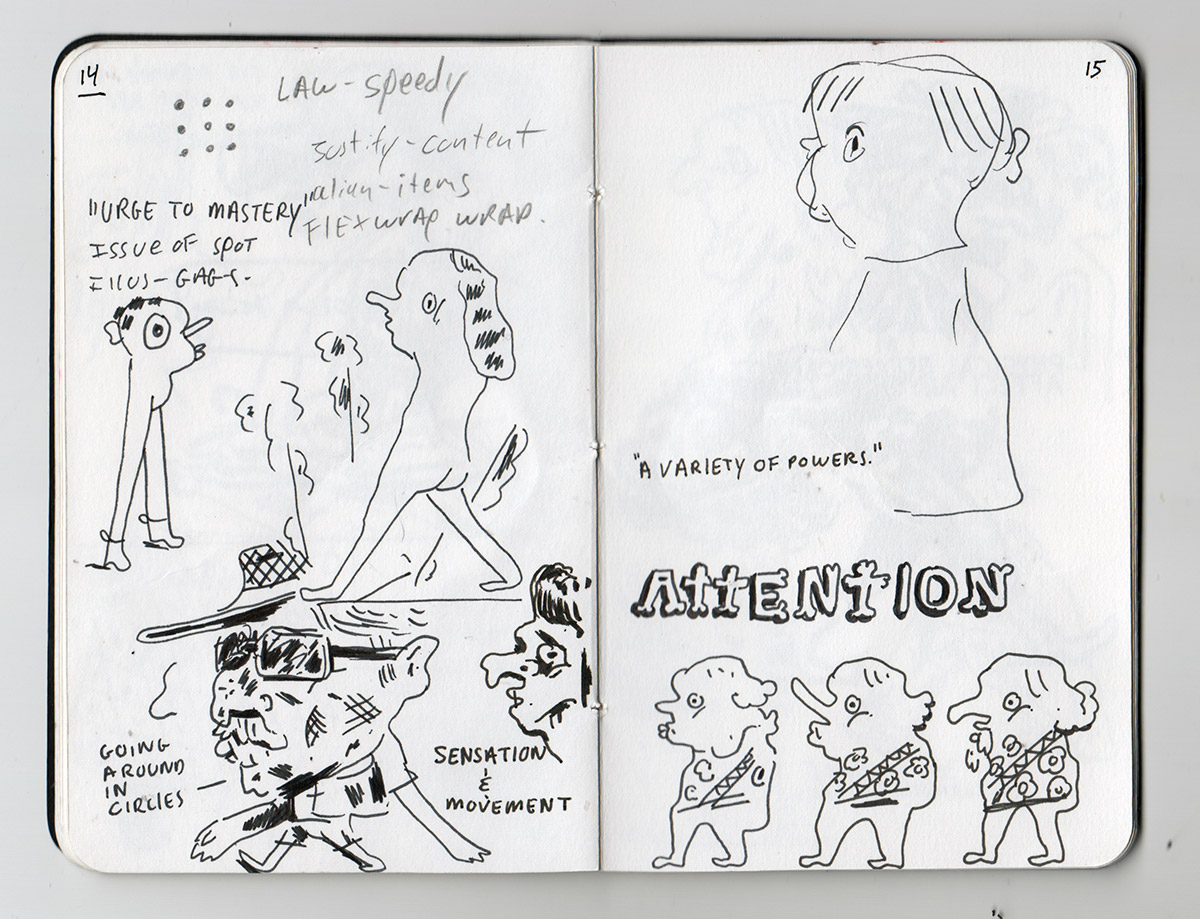 14
LAW-speedy
Justify-content
align-items
FlEXWRAP WRAP.
"URGE TO MASTERY"
ISSUE OF SPOT
ILLUS-GAGS.
GOING
AROUND
IN
CIRCLES
SENSATION
&
MOVEMENT
15
"A VARIETY OF POWERS."
AttENtION